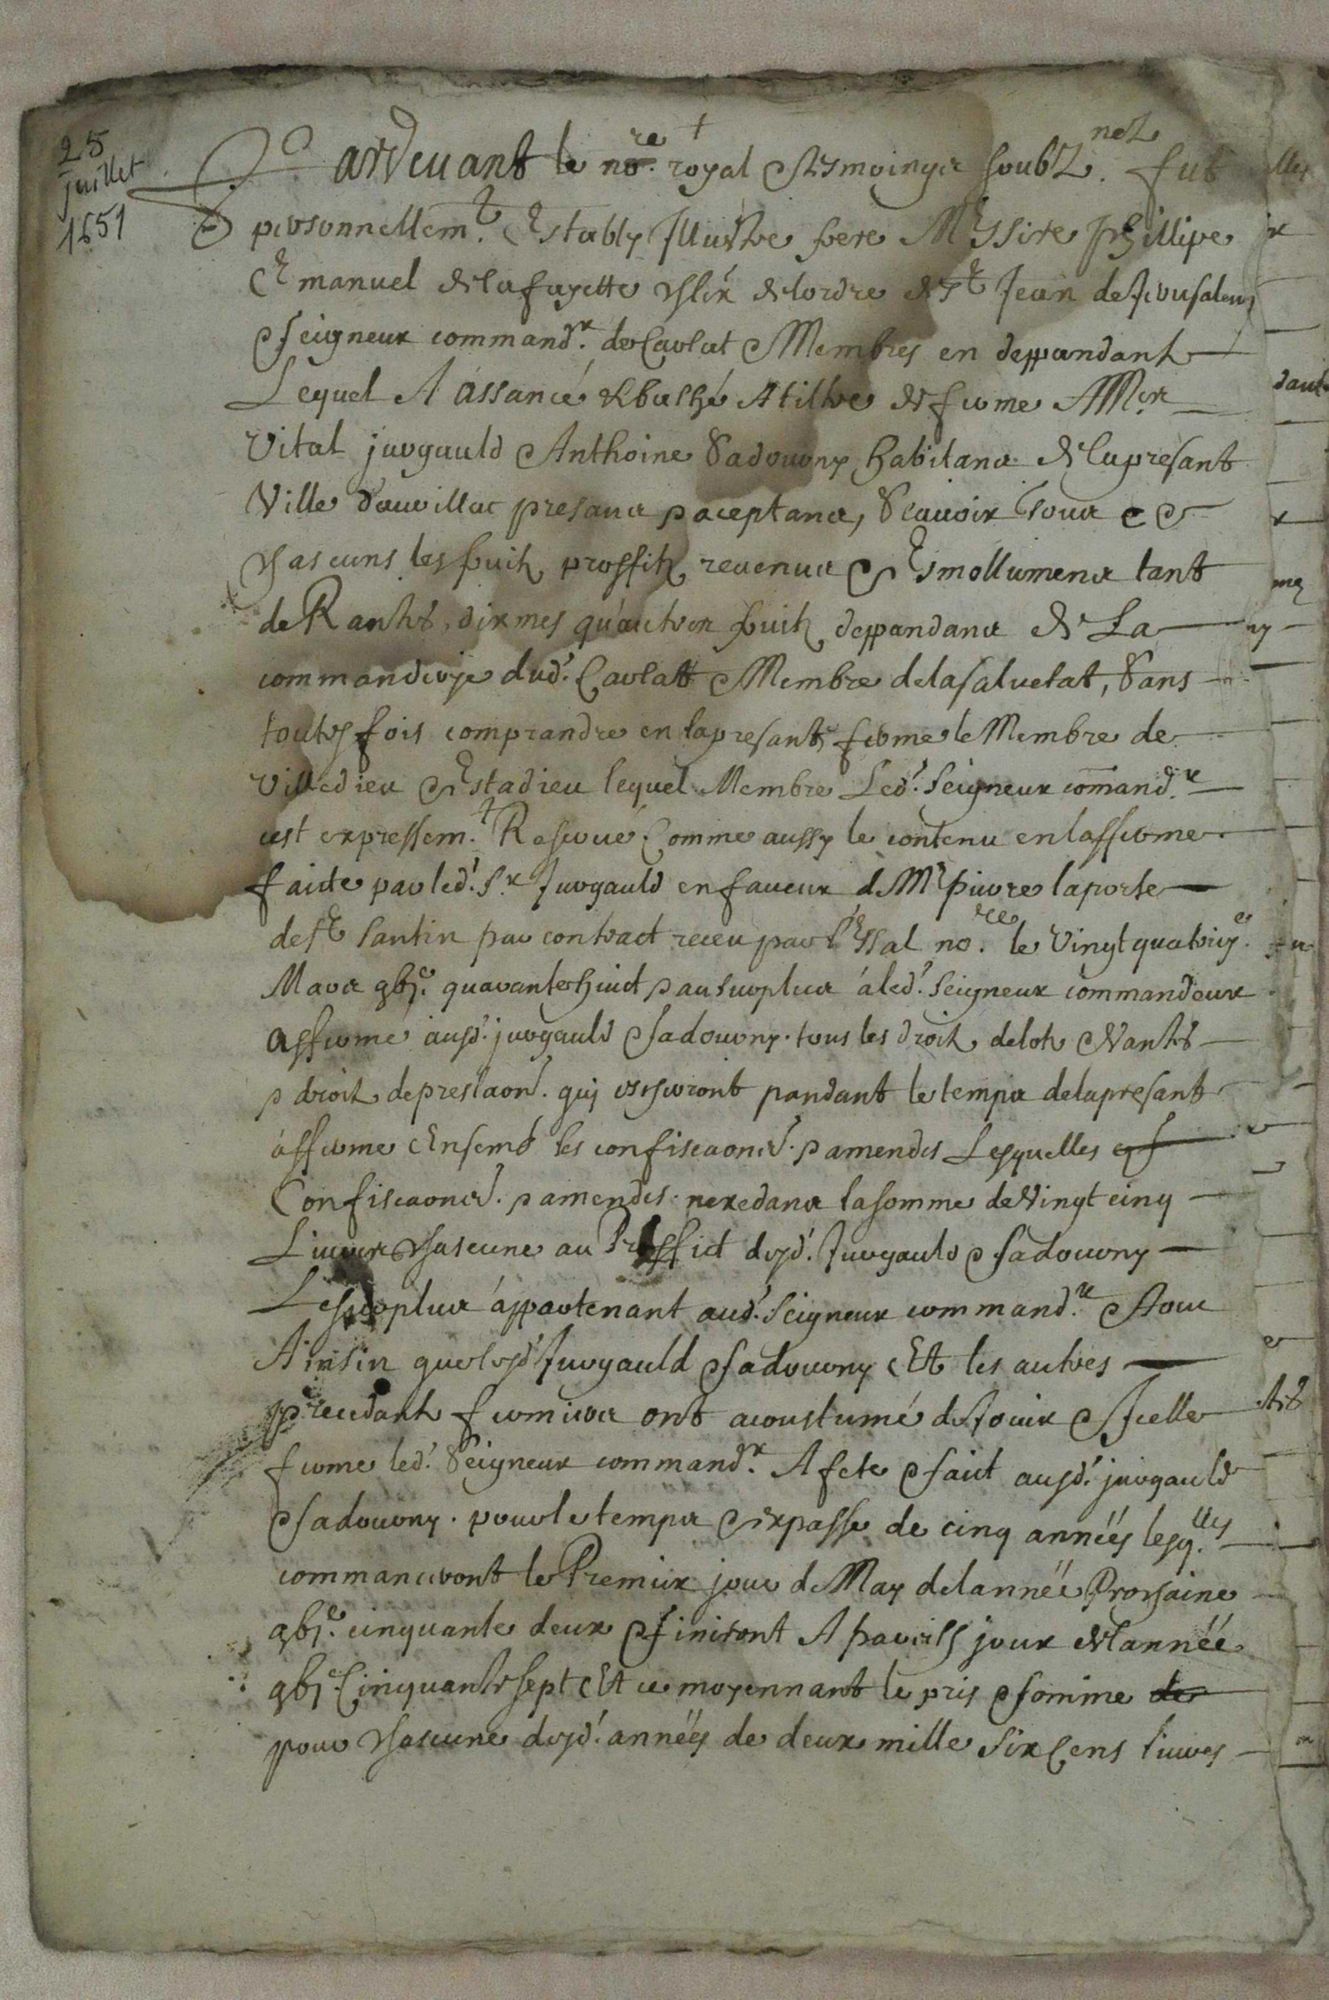 25
juillet
1651
Pardevant le no.re royal & tesmoingz soubz.nez fut
personnellem.t Estably Illustre frere Messire Phillipe
Emanuel de lafayette chlier de lordre de St Jean de Jerusalem
& seigneur command.r de Carlat & Membres en deppandant
Lequel A assancé & baillhé A tiltre de ferme A Mes
Vital jurgauld & Anthoine Sadourny habitans de la presant
Ville daurillac presans & aceptans, Scavoir tous e &
chascuns les fruitz proffitz revenus & Esmollumens tant
de Rantes, dixmes quautres fruitz deppandans de La
commanderye dud.t Carlatt & Membre de la salvetat, Sans
toutesfois comprandre en la presante ferme le Membre de
Villedieu & Estadieu lequel Membre Led.t Seigneur command.r
cest expressem.t Reservé Comme aussy le contenu en lafferme
faicte par led.t S.r Jurgauld en faveur de Mr pierre laporte
de St Santin par contract receu par Vssal no.re le Vingt quatriye.
Mars gbjc. quarantehuict & au surplus á led.t Seigneur commandeur
afferme ausd.t jurgauld & sadourny tous les droitz de lotz & vantes
& droitz de prestaon. quy escherront pandant le temps de la presant
afferme Ensemb les confiscaons. & amendes Lesquelles
Confiscaons. & amendes nexedans la somme de Vingt cinq
Livres chascune au Proffict desd.t Jurgauld & sadourny
Le surplus appartenant aud.t Seigneur command.r & tout
Ainsin que lesd.t Jurgauld & sadourny Et les autres
precedantz fermiers ont acoustumé de Jouir & Icelle
ferme led.t Seigneur command.r A fete & faict ausd.t jurgauld
& sadourny pour le temps & expasse de cinq années lesq.lles
commanceront le Premier jour de May de lannée Prochaine
gbjc. cinquante deux & finiront A pareilh jour de lannée
gbjc Cinquante sept Et ce moyennant le pris & somme de
pour chascune desd.t années de deux mille Six Cens livres